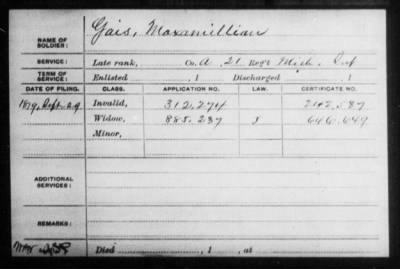 NAME OF SOLDIER: Gais, Maxamillian
SERVICE: Late rank, Co. A, 21 Reg't Mich. Inf
TERM OF SERVICE: Enlisted , 1 Discharged , 1
DATE OF FILING. CLASS. APPLICATION NO. CERTIFICATE NO.
1879, Sept. 29 Invalid, 312,274 242,587
Widow, 885.237 646.649
Minor,
ADDITIONAL SERVICES:
REMARKS:
Died , 1 , at